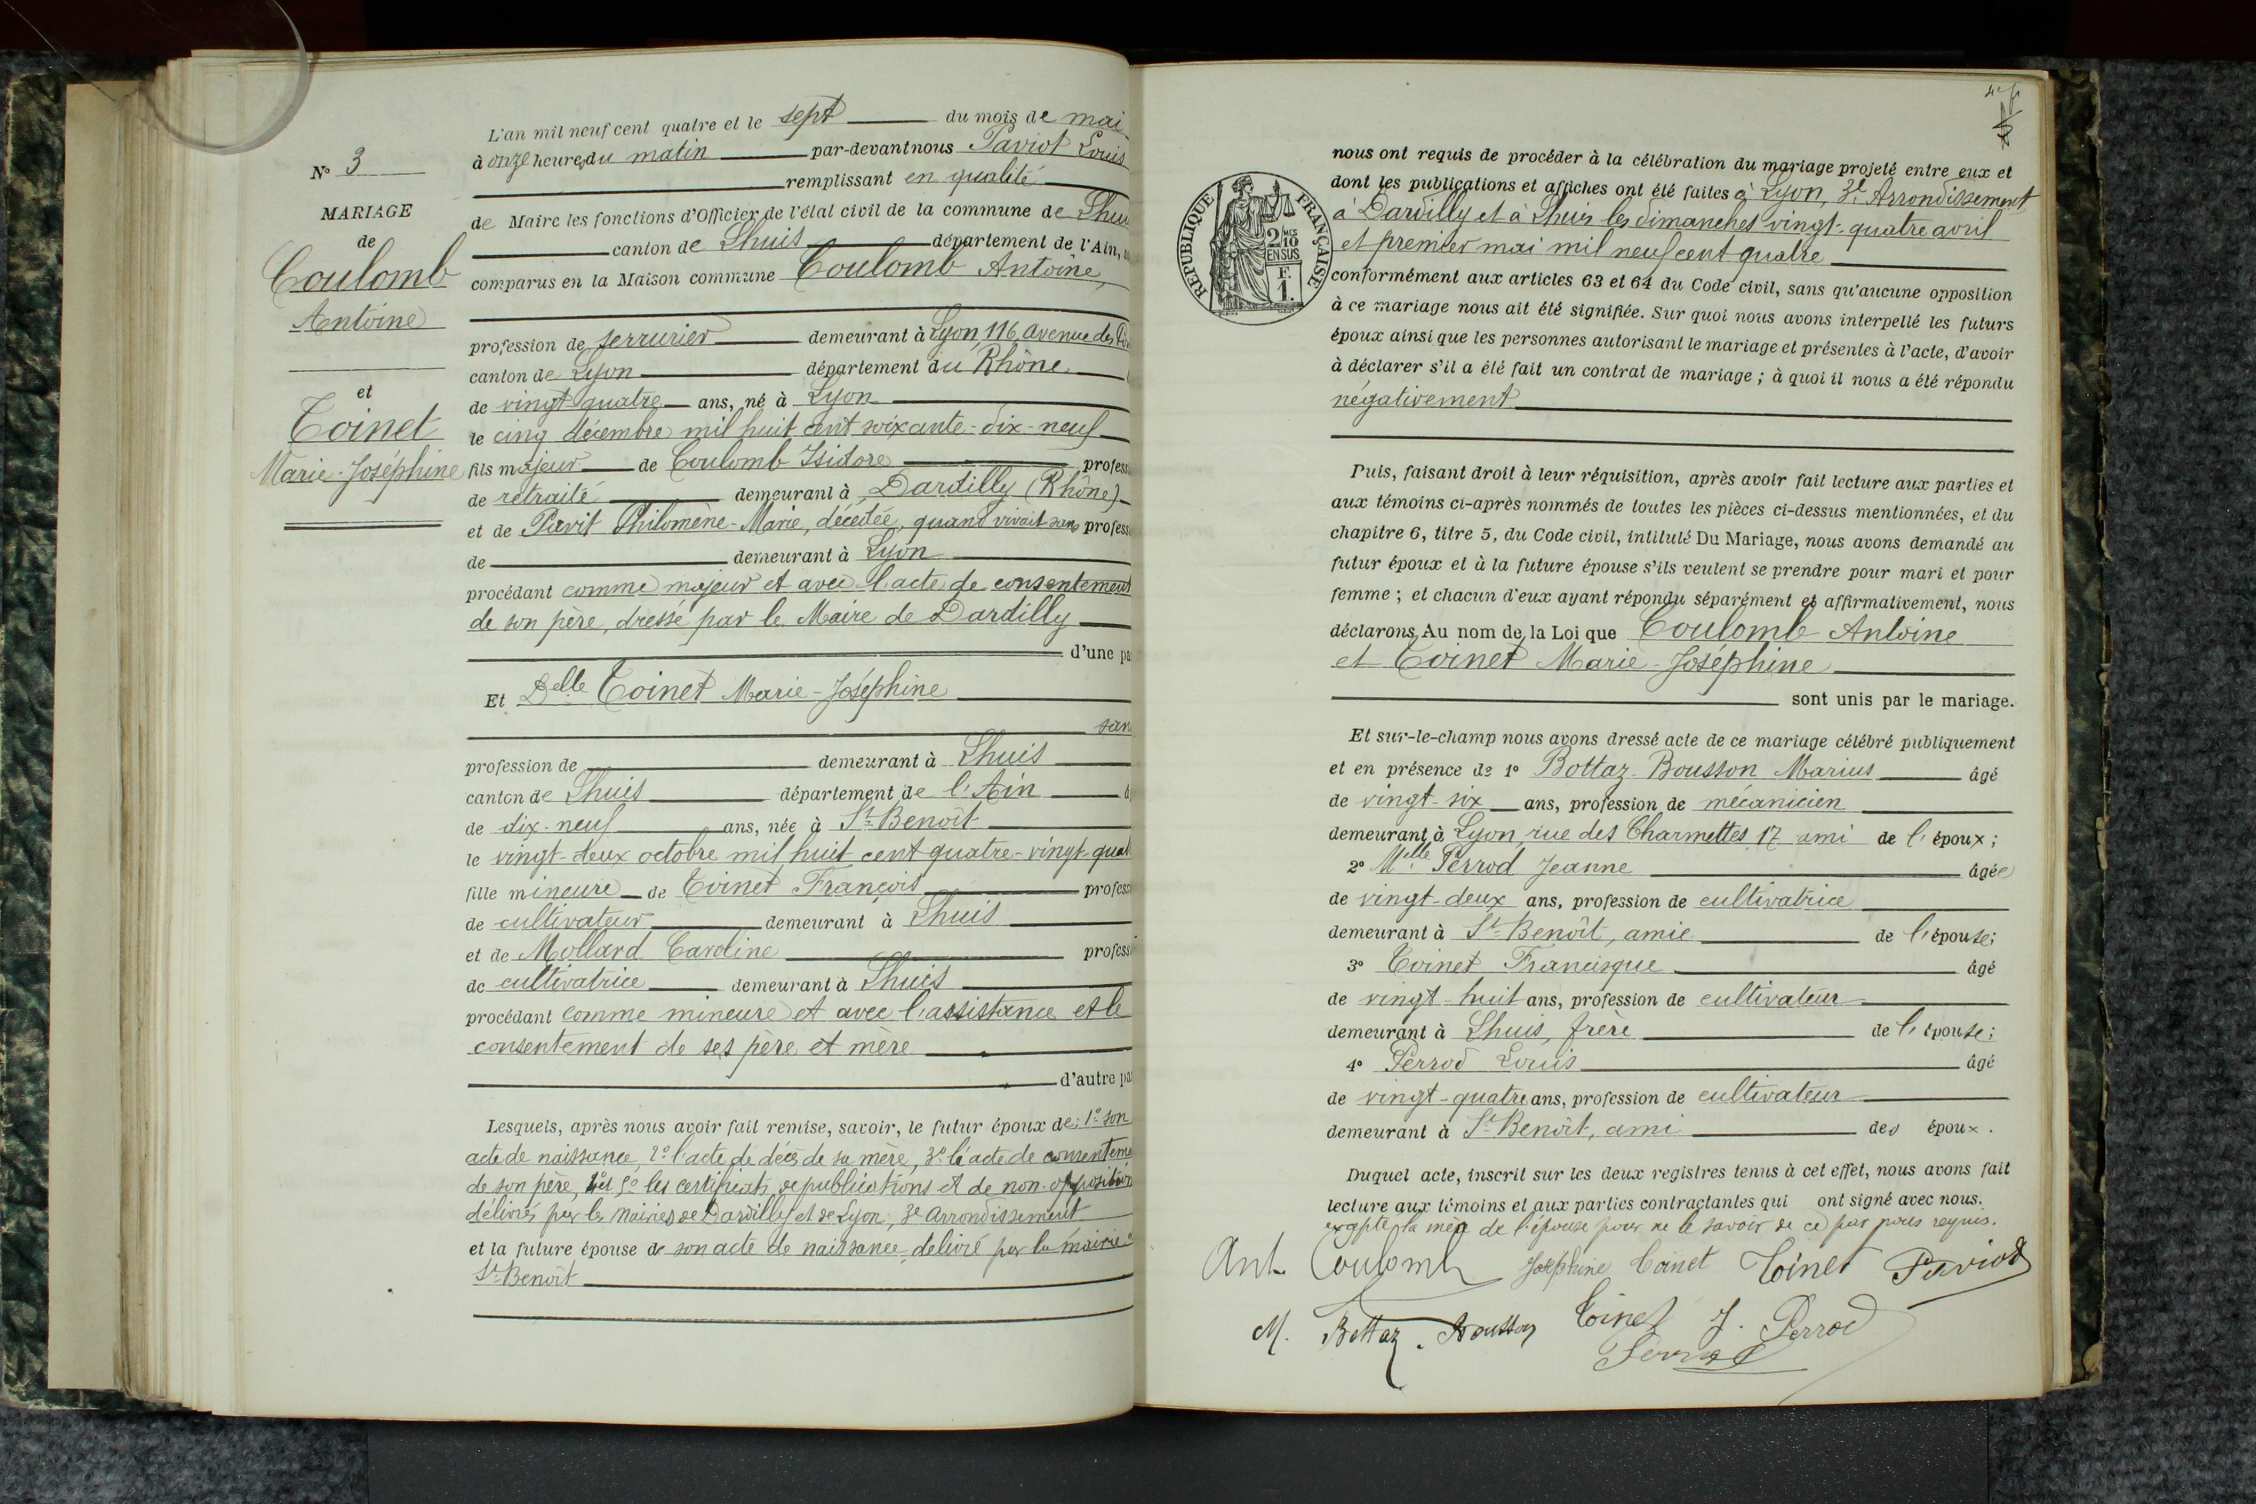 N° 3
MARIAGE
de
Coulomb
Antoine
et
Toinet
Marie-Joséphine
L'an mil neuf cent quatre et le sept du mois de mai
à onze heures du matin par-devant nous Paviot Louis
remplissant en qualité
de Maire les fonctions d'Officier de l'état civil de la commune de Lhuis
canton de Lhuis département de l'Ain,
comparus en la Maison commune Coulomb Antoine,
profession de serrurier demeurant à Lyon, 116, avenue des
canton de Lyon département du Rhône
de vingt-quatre ans, né à Lyon
le cinq décembre mil huit cent soixante-dix-neuf
fils majeur de Coulomb Isidore profess
de retraité demeurant à Dardilly (Rhône)
et de Pavit Philomène-Marie, décédée, quand vivait sans profess
de demeurant à Lyon
procédant comme majeur et avec l'acte de consentement
de son père, dressé par le Maire de Dardilly
d'une pa
Et Delle Toinet Marie-Joséphine
san
profession de demeurant à Lhuis
canton de Lhuis département de l'Ain
de dix-neuf ans, née à St-Benoît
le vingt-deux octobre mil huit cent quatre-vingt-quat
fille mineure de Toinet François profess
de cultivateur demeurant à Lhuis
et de Mollard Caroline professi
de cultivatrice demeurant à Lhuis
procédant comme mineure et avec l'assistance et le
consentement de ses père et mère
d'autre pa
Lesquels, après nous avoir fait remise, savoir, le futur époux de: 1° son
acte de naissance, 2° l'acte de décès de sa mère, 3° l'acte de consenteme
de son père, 4° et 5° les certificats de publications et de non-opposition
délivrés par les Mairies de Dardilly et de Lyon, 3e arrondissement
et la future épouse de son acte de naissance, délivré par la mairie
St-Benoît
RÉPUBLIQUE FRANÇAISE
2/10 EN SUS
F.
1.
nous ont requis de procéder à la célébration du mariage projeté entre eux et
dont les publications et affiches ont été faites à Lyon, 3e Arrondissement
à Dardilly et à Lhuis les dimanches vingt-quatre avril
et premier mai mil neuf cent quatre
conformément aux articles 63 et 64 du Code civil, sans qu'aucune opposition
à ce mariage nous ait été signifiée. Sur quoi nous avons interpellé les futurs
époux ainsi que les personnes autorisant le mariage et présentes à l'acte, d'avoir
à déclarer s'il a été fait un contrat de mariage ; à quoi il nous a été répondu
négativement
Puis, faisant droit à leur réquisition, après avoir fait lecture aux parties et
aux témoins ci-après nommés de toutes les pièces ci-dessus mentionnées, et du
chapitre 6, titre 5, du Code civil, intitulé Du Mariage, nous avons demandé au
futur époux et à la future épouse s'ils veulent se prendre pour mari et pour
femme ; et chacun d'eux ayant répondu séparément et affirmativement, nous
déclarons Au nom de la Loi que Coulomb Antoine
et Toinet Marie-Joséphine
sont unis par le mariage.
Et sur-le-champ nous avons dressé acte de ce mariage célébré publiquement
et en présence de 1° Bottaz-Bousson Marius âgé
de vingt-six ans, profession de mécanicien
demeurant à Lyon, rue des Charmettes 17 ami de l'époux ;
2° Melle Perrod Jeanne âgée
de vingt-deux ans, profession de cultivatrice
demeurant à St-Benoît, amie de l'épouse ;
3° Toinet Francisque âgé
de vingt-huit ans, profession de cultivateur
demeurant à Lhuis, frère de l'épouse ;
4° Perrod Louis âgé
de vingt-quatre ans, profession de cultivateur
demeurant à St-Benoît, ami des époux.
Duquel acte, inscrit sur les deux registres tenus à cet effet, nous avons fait
lecture aux témoins et aux parties contractantes qui ont signé avec nous.
excepté la mère de l'épouse pour ne le savoir de ce par nous requis.
Ant. Coulomb Joséphine Toinet Toinet Paviot
M. Bottaz-Bousson Toinet J. Perrod
Perrod